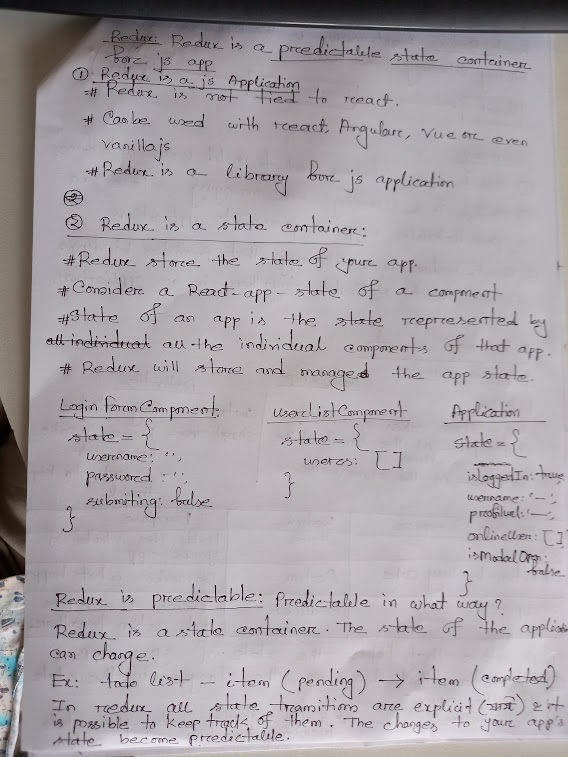 Redux: Redux is a predictable state container
for js app
① Redux is a js Application
# Redux is not tied to react.
# Canbe used with react, Angular, Vue or even
vanillajs
# Redux is a library for js application
②
② Redux is a state container:
# Redux store the state of your app.
# Consider a React-app - state of a compment
# State of an app is the state represented by
all individual all the individual components of that app.
# Redux will store and managed the app state.
Login form Component:
state = {
username: '',
password : '',
submiting: false
}
userListComponent
state = {
users: []
}
Application
state = {
isloggedIn: true
username: '—',
profileurl: '—',
onlineUser: []
isModalOpn:
false
}
Redux is predictable: Predictable in what way?
Redux is a state container. The state of the applica
can change.
Ex: todo list - item (pending) → item (completed)
In redux all state transitions are explicit () & it
is possible to keep track of them. The changes to your app's
state become predictable.